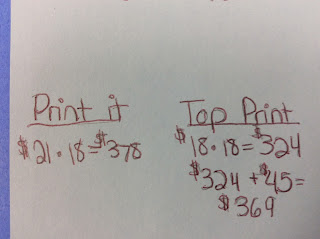 Print it
$21 • 18 = $378
Top Print
$18 • 18 = $324
$324 + $45 =
$369